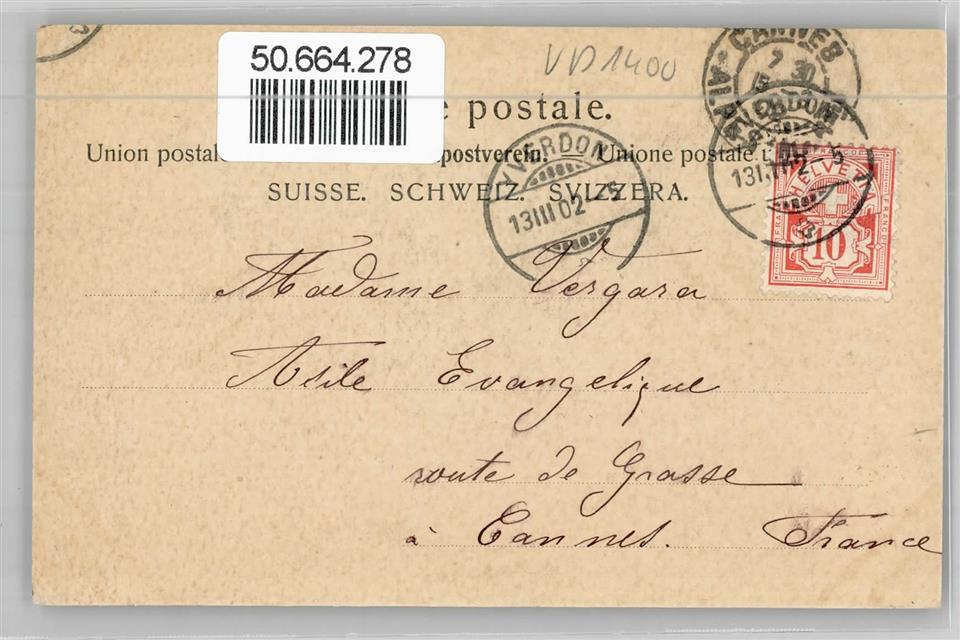 50.664.278
VD1400
e postale.
Union postal postverein. Unione postale
SUISSE. SCHWEIZ. SVIZZERA.
YVERDON
13 III 02 – 5
CANNES
7 30
YVERDON
13 III 02 – 5
FRANCO
HELVETIA
FRANCO
10
Madame Vergara
Asile Evangelique
route de Grasse
à Cannes. France